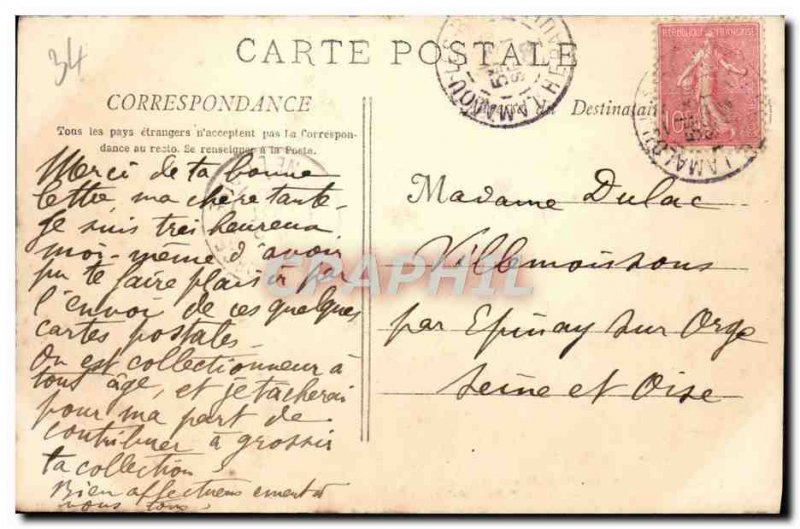 34
CARTE POSTALE
CORRESPONDANCE
Tous les pays étrangers n'acceptent pas la Correspon-
dance au recto. Se renseigner à la Poste.
Merci de ta bonne
lettre ma chère tante.
Je suis très heureux
moi-même d'avoir
pu te faire plaisir par
l'envoi de ces quelques
cartes postales.
On est collectionneur à
tout âge, et je tacherai
pour ma part de
contribuer à grossir
ta collection
Bien affectueusement à
vous tous
Destinatai
REPUBLIQUE FRANÇAISE
10
LAMALOU
HERAULT
Madame Dulac
Villemoissons
par Epinay sur Orge
Seine et Oise
CPAPHIL